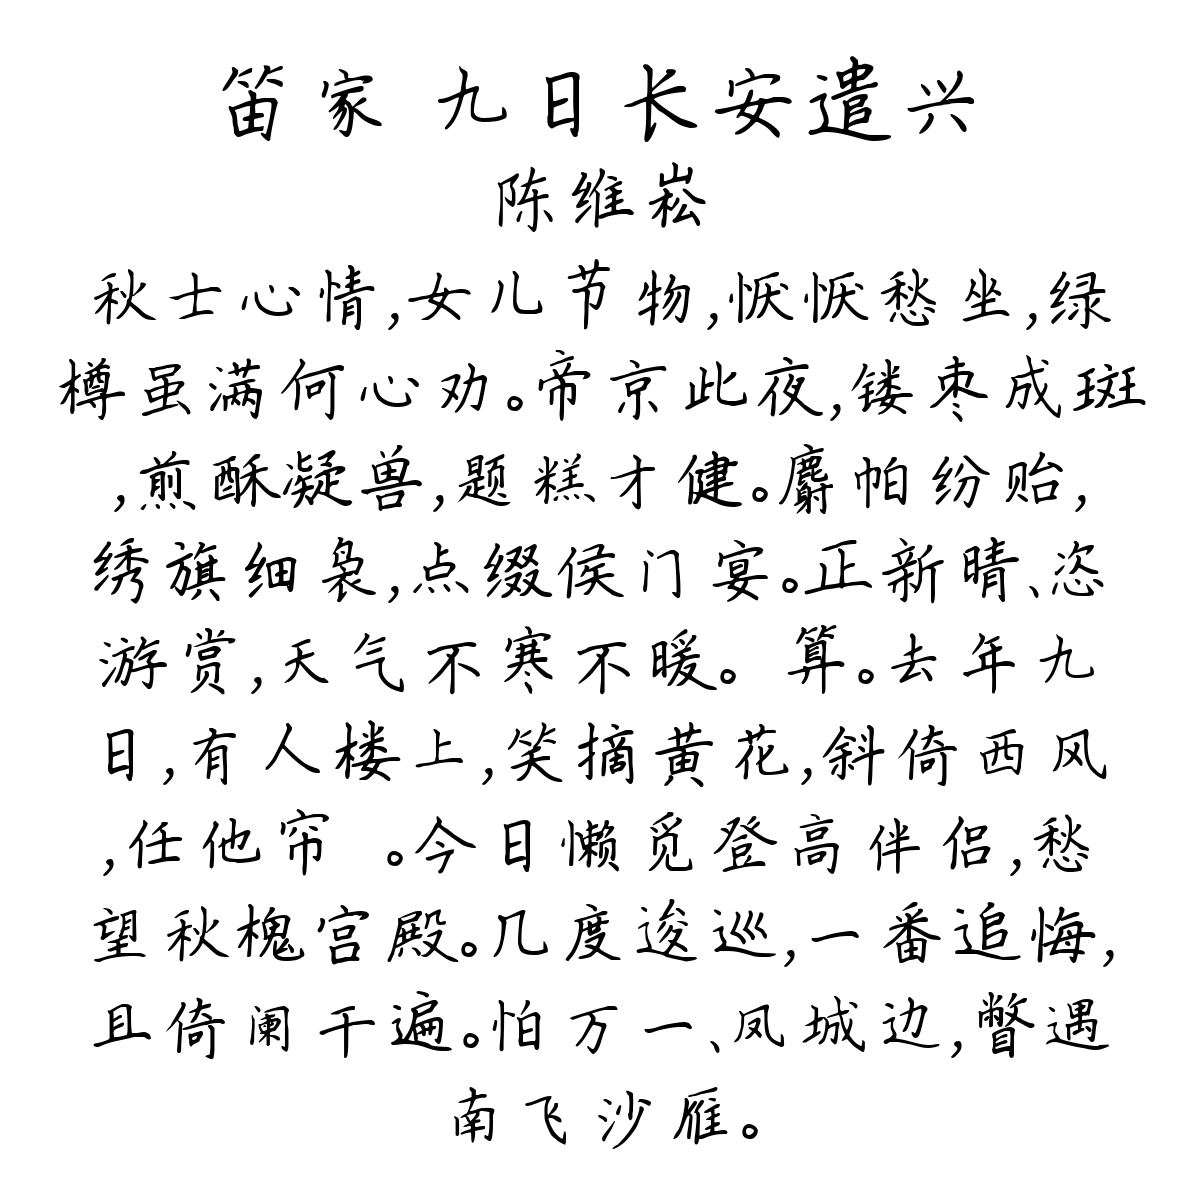 笛家 九日长安遣兴
陈维崧
秋士心情,女儿节物,恹恹愁坐,绿
樽虽满何心劝。帝京此夜,镂枣成斑
,煎酥凝兽,题糕才健。麝帕纷贻,
绣旗细袅,点缀侯门宴。正新晴、恣
游赏,天气不寒不暖。 算。去年九
日,有人楼上,笑摘黄花,斜倚西风
,任他帘 。今日懒觅登高伴侣,愁
望秋槐宫殿。几度逡巡,一番追悔,
且倚阑干遍。怕万一、凤城边,瞥遇
南飞沙雁。